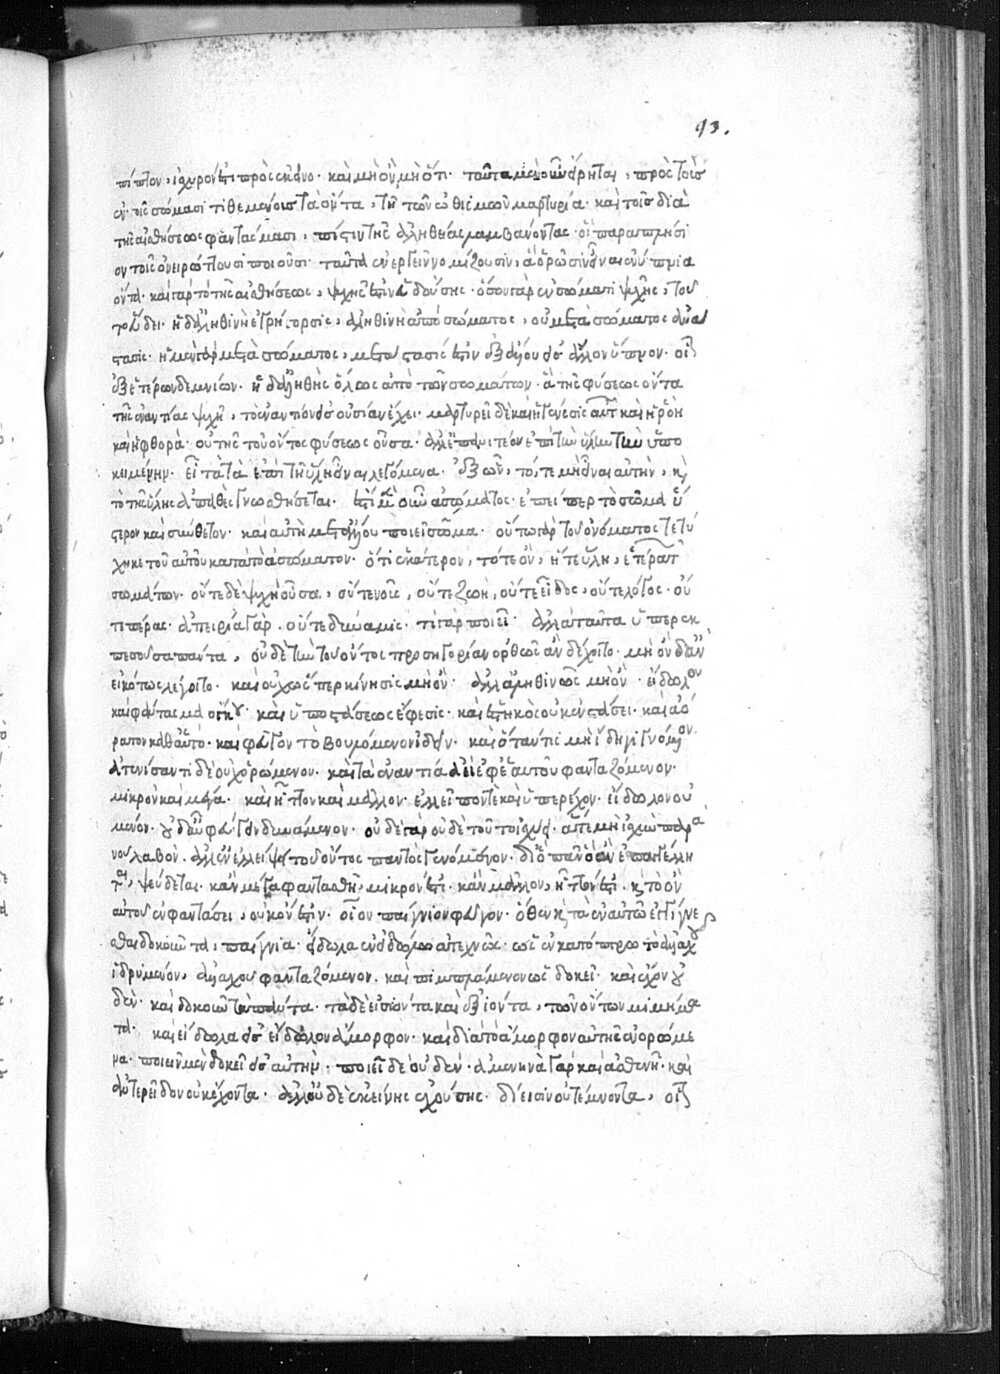 93.
πίπτον, ἰσχυρὸν ἐπὶ πρὸς ἐκεῖνο· καὶ μὴ ὂν, μὴ ὅτι· ταῦτα μὲν οὖν εἴρηται, πρὸς τοὺς
ἐν τοῖς σώμασι τιθεμένους τὰ ὄντα, τῇ τῶν ὠθισμῶν μαρτυρίᾳ· καὶ τοῖς διὰ
τῆς αἰσθήσεως φαντάσμασι, πίστιν τῆς ἀληθείας λαμβάνοντας· οἳ παραπλησί
ον τοῖς ὀνειρώττουσι ποιοῦσι· ταῦτα ἐνεργεῖν νομίζουσιν, ἃ ὁρῶσιν εἶναι ἐνύπνια
ὄντα· καὶ γὰρ τὸ τῆς αἰσθήσεως, ψυχῆς ἐστὶν εὑδούσης· ὅσον γὰρ ἐν σώματι ψυχῆς, τοῦ
το εὕδει· ἡ δ' ἀληθινὴ ἐγρήγορσις, ἀληθινὴ ἀπὸ σώματος, οὐ μετὰ σώματος ἀνά
στασις· ἡ μὲν γὰρ μετὰ σώματος, μετάστασίς ἐστιν ἐξ ἄλλου εἰς ἄλλον ὕπνον· οἷον
ἐξ ἑτέρων δεμνίων· ἡ δ' ἀληθὴς ὅλως ἀπὸ τῶν σωμάτων· ἃ τῆς φύσεως ὄντα
τῆς ἐναντίας ψυχῇ, τὸ ἐναντίον εἰς οὐσίαν ἔχει· μαρτυρεῖ δὲ καὶ ἡ γένεσις αὐτῶν καὶ ἡ ῥοὴ
καὶ ἡ φθορά· οὐ τῆς τοῦ ὄντος φύσεως οὖσα· ἀλλ' ἐπανιτέον ἐπί τε τὴν ὕλην τὴν ὑπο
κειμένην· εἶτα τὰ ἐπὶ τῇ ὕλῃ εἶναι λεγόμενα· ἐξ ὧν, τό, τε μὴ εἶναι αὐτὴν, καὶ
τὸ τῆς ὕλης ἀπαθὲς γνωσθήσεται· ἔστι μὲν οὖν ἀσώματος· ἐπείπερ τὸ σῶμα ὕ
στερον καὶ σύνθετον· καὶ αὐτὴ μετ' ἄλλου ποιεῖ σῶμα· οὕτω γὰρ τοῦ ὀνόματος τετύ
χηκε τοῦ αὐτοῦ κατὰ τὸ ἀσώματον· ὅτι ἑκάτερον, τό τε ὂν, ἥ τε ὕλη, ἕτερα τῶν
σωμάτων· οὔτε δὲ ψυχὴ οὖσα, οὔτε νοῦς, οὔτε ζωὴ, οὔτε εἶδος, οὔτε λόγος· οὔ
τε πέρας· ἀπειρία γάρ· οὔτε δύναμις· τί γὰρ ποιεῖ· ἀλλὰ ταῦτα ὑπερεκ
πεσοῦσα πάντα, οὐδὲ τὴν τοῦ ὄντος προσηγορίαν ὀρθῶς ἂν δέχοιτο· μὴ ὂν δ' ἂν
εἰκότως λέγοιτο· καὶ οὐχ ὥσπερ κίνησις μὴ ὂν· ἀλλ' ἀληθινῶς μὴ ὄν· εἴδωλον
καὶ φάντασμα ὄγκου· καὶ ὑποστάσεως ἔφεσις· καὶ ἑστηκὸς οὐκ ἐν στάσει· καὶ ἀό
ρατον καθ' αὑτό· καὶ φεῦγον τὸ βουλόμενον ἰδεῖν· καὶ ὅταν τις μὴ ἴδῃ γιγνόμενον·
ἀτενίσαντι δὲ οὐχ ὁρώμενον· καὶ τὰ ἐναντία ἀεὶ ἐφ' ἑαυτοῦ φανταζόμενον·
μικρὸν καὶ μέγα· καὶ ἧττον καὶ μᾶλλον· ἐλλεῖπόν τε καὶ ὑπερέχον· εἴδωλον οὐ
μένον· οὐδ' αὖ φεύγειν δυνάμενον· οὐδὲ γὰρ οὐδὲ τοῦτο ἰσχύει· ἅτε μὴ ἰσχὺν παρὰ
νοῦ λαβὸν· ἀλλ' ἐν ἐλλείψει τοῦ ὄντος παντὸς γενόμενον· διὸ πᾶν ὃ ἂν ἐπαγγέλλη
ται, ψεύδεται· κἂν μέγα φαντασθῇ, μικρόν ἐστι· κἂν μᾶλλον, ἧττόν ἐστι· καὶ τὸ ὂν
αὐτοῦ ἐν φαντάσει, οὐκ ὄν ἐστιν· οἷον παίγνιον φεῦγον· ὅθεν καὶ τὰ ἐν αὐτῷ ἐγγίγνε
σθαι δοκοῦντα, παίγνια· εἴδωλα ἐν εἰδώλῳ ἀτεχνῶς· ὡς ἐν κατόπτρῳ τὸ ἀλλαχοῦ
ἱδρυμένον, ἀλλαχοῦ φανταζόμενον· καὶ πιμπλάμενον ὡς δοκεῖ· καὶ ἔχον οὐ
δέν· καὶ δοκοῦν τὰ πάντα· τὰ δὲ εἰσιόντα καὶ ἐξιόντα, τῶν ὄντων μιμήμα
τα· καὶ εἴδωλα εἰς εἴδωλον ἄμορφον· καὶ διὰ τὸ ἄμορφον αὐτῆς ἐνορώμε
να· ποιεῖν μὲν δοκεῖ εἰς αὐτὴν· ποιεῖ δὲ οὐδέν· ἀμενηνὰ γὰρ καὶ ἀσθενῆ· καὶ
ἀντερεῖδον οὐκ ἔχοντα· ἀλλ' οὐδὲ ἐκείνης ἐχούσης· δίεισιν οὐ τέμνοντα, οἷον